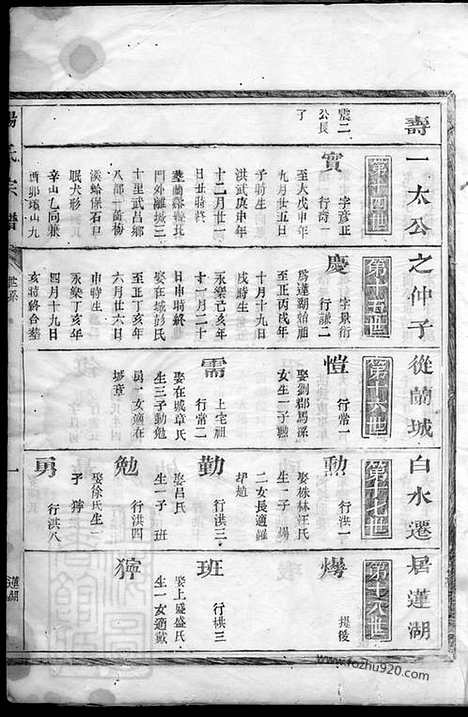 壽一太公之仲子從蘭城白水遷居蓮湖
第十四世
震二
公長
了
實
字彥正
行尚一
至大戊申年
九月廿五日
子時生
洪武庚申年
十二月廿一
日丑時終
塟蘭谿縣北
門外離城三
十里武昌鄉
八都一葡楊
溪蛤𧓎石口
眠犬形
辛山乙向兼
酉卯
第十五世
慶
字泉衍
行謙二
爲蓮湖始祖
至正丙戌年
十月十九日
戌時生
永樂己亥年
十一月二十
日申時終
娶在城彭氏
至正丁亥年
六月廿六日
申時生
永樂丁亥年
四月十九日
亥時終合塟
第十六世
愷
行常一
娶劉郡馬孫
女生一子
需
上宅祖
行常二
娶在城章氏
生三子勳勉
勇一女適在
城章
第十七世
勳
行洪一
娶株林汪氏
生一子
二女長適羅
胡
勤
行洪三
娶呂氏
生一子 班
勉
行洪四
娶徐氏生一
子 獰
勇
行洪八
第十八世
提後
班
行棋三
娶上盛盛氏
生一女適戴
獰
楊氏宗譜
世系
一
蓮湖
www.fozhu920.com